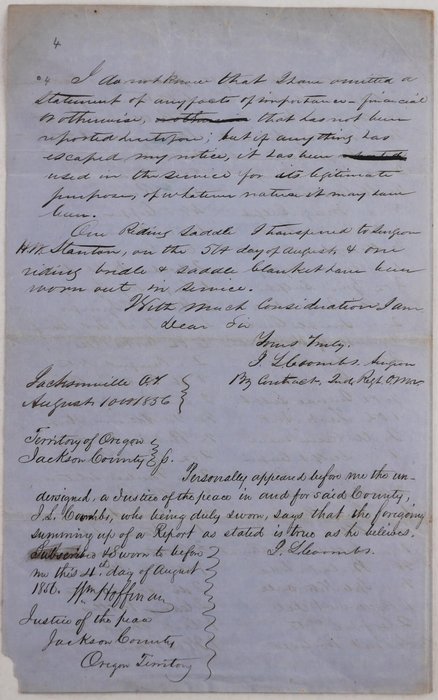 4
I do not know that I have omitted a
statement of any facts of importance - financial
or otherwise, that has not been
reported heretofore; but if anything has
escaped my notice, it has been
used in the service for its legitimate
purposes, of whatever nature it may have
been.
One Riding Saddle I transfered to Surgeon
Stanton, on the 5th day of August & one
riding bridle & saddle blanket have been
worn out in service.
With Much Consideration, I am
Dear Sir
Yours Truly,
J. L. Coombs. Surgeon
By Contract, 2nd Regt O. M. V.
Jacksonville O.T.
August 10th 1856
Territory of Oregon
Jackson County
Personally appeared before me the un-
dersigned, a Justice of the peace in and for said County,
J. L. Coombs, who being duly sworn, says that the forgoing
summing up of a Report as stated is true as he believes.
Subscribed & Sworn to before J. L. Coombs.
me this day of August
1856. Wm Hoffman
Justice of the peace
Jackson County
Oregon Territory